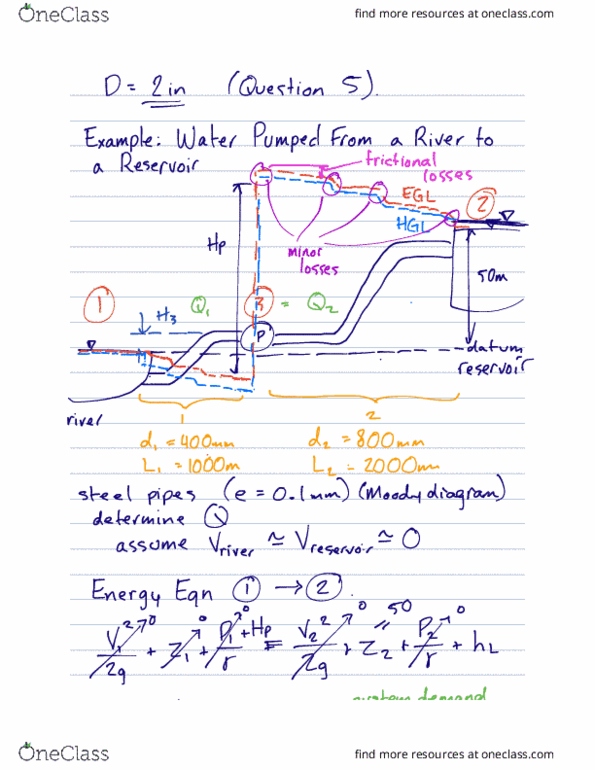 OneClass
find more resources at oneclass.com
D = 2in (Question 5).
Example: Water Pumped From a River to
a Reservoir
frictional
losses
EGL
2
HGL
Hp
minor
losses
50m
1
H3
Q1
3
= Q2
P
datum
reservoir
river
1
2
d1 = 400mm
d2 = 800mm
L1 = 1000m
L2 = 2000mm
steel pipes (e = 0.1mm) (Moody diagram)
determine Q
assume Vriver ≃ Vreservoir ≃ 0
Energy Eqn 1 → 2
0 0 0 0 50 0
V1²/2g + Z1 + P1/r + Hp = V2²/2g + Z2 + P2/r + hL
system demand
OneClass
find more resources at oneclass.com